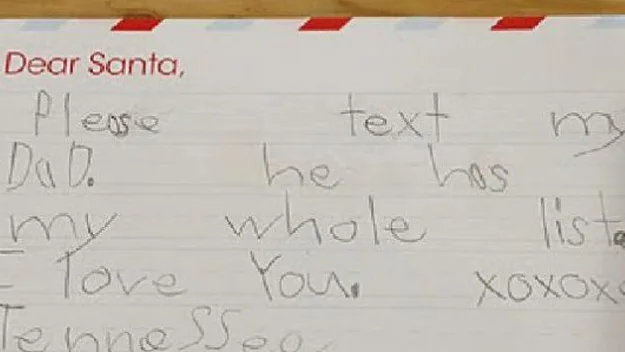 Dear Santa,
Please text my
DaD. he has
my whole list.
I love You. xoxoxo
Tennessee